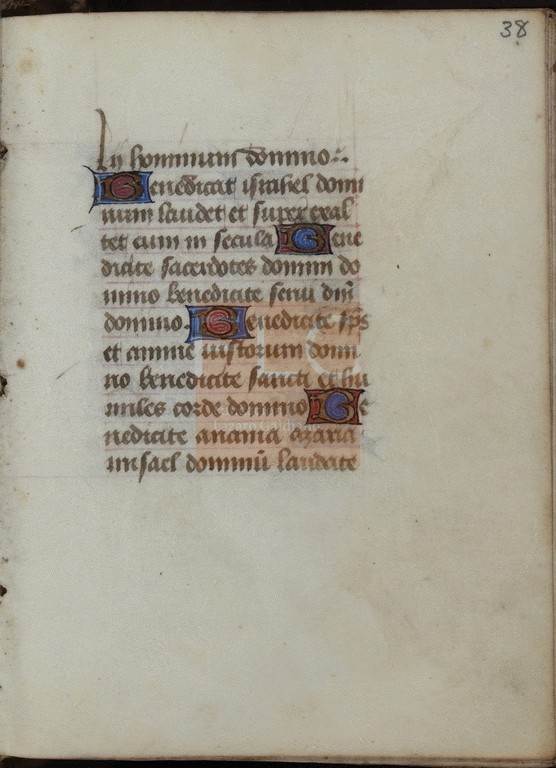 38
lij hominum domino:·
Benedicat israhel domi
num laudet et superexal
tet eum in secula Bene
dicite sacerdotes domini do
mino benedicite serui dñi
domino. Benedicite sp̃s
et anime iustorum domi
no benedicite sancti et hu
miles corde domino Be
nedicite anania azaria
misael dominũ laudate
Lázaro Galdiano